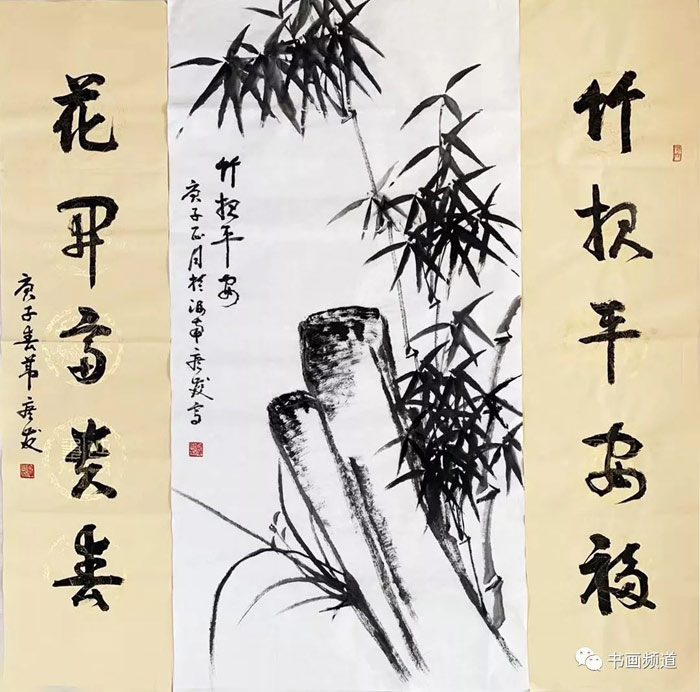 竹报平安福
竹报平安
庚子正月於海南 写
花开富贵春
庚子春
书画频道